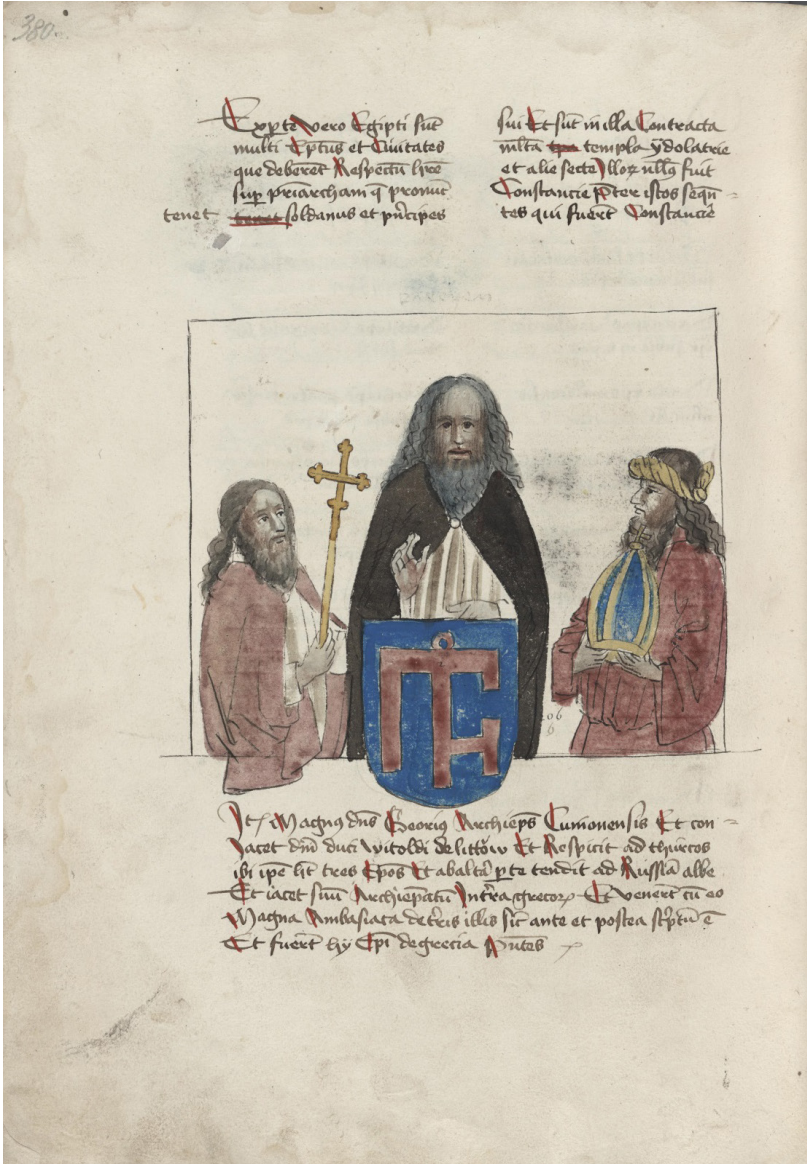 380.
Ex pte vero Egipti sūt
multi Ep̄tus et Ciuitates
que deberēt Respectū hr̄e
sup̱ pr̄iarcham q̄
tenet tenet soldanus et pn̄cipes
sui Et sūt in illa Contracta
mlta templa ydolatrie
et alie secte Illoꝝ nullꝯ fuit
Constancie p̱ter istos seqn̄-
tes qui fuerūt Constancie
Itꝫ Magnꝯ dn̄s Georiꝯ Archiep̄s Et con-
iacet dn̄i duci witoldi de littow Et Respicit ad thurcos
ibi ip̄e hꝫ tres Ep̄os Et ab alt̄a p̱te tendit ad Russiā albe
Et iacet suū Archiep̄atū Int̄ra grecoꝝ Et venerūt cū eo
Magna Ambasiata de t̄ris illis sic̄ ante et postea sc̄ptū ē
Et fuerūt hy Ep̄i de grecia